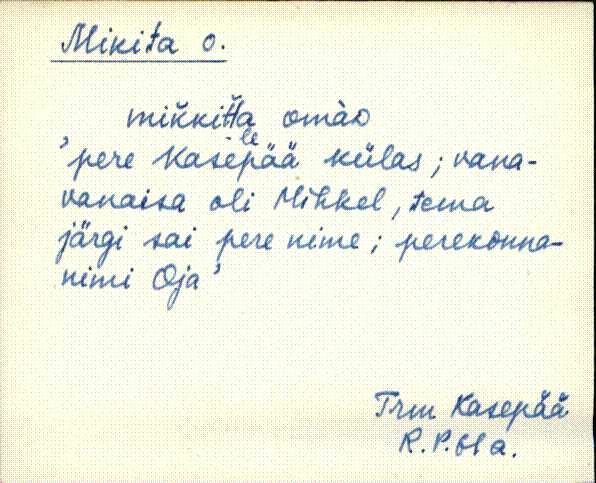 Mikita o.
mikkitta omào
'pere Kasepää külas; vana-
vanaisa oli Mihkel, tema
järgi sai pere nime; perekonna-
nimi Oja'
Trm Kasepää
R. P. 61 a.